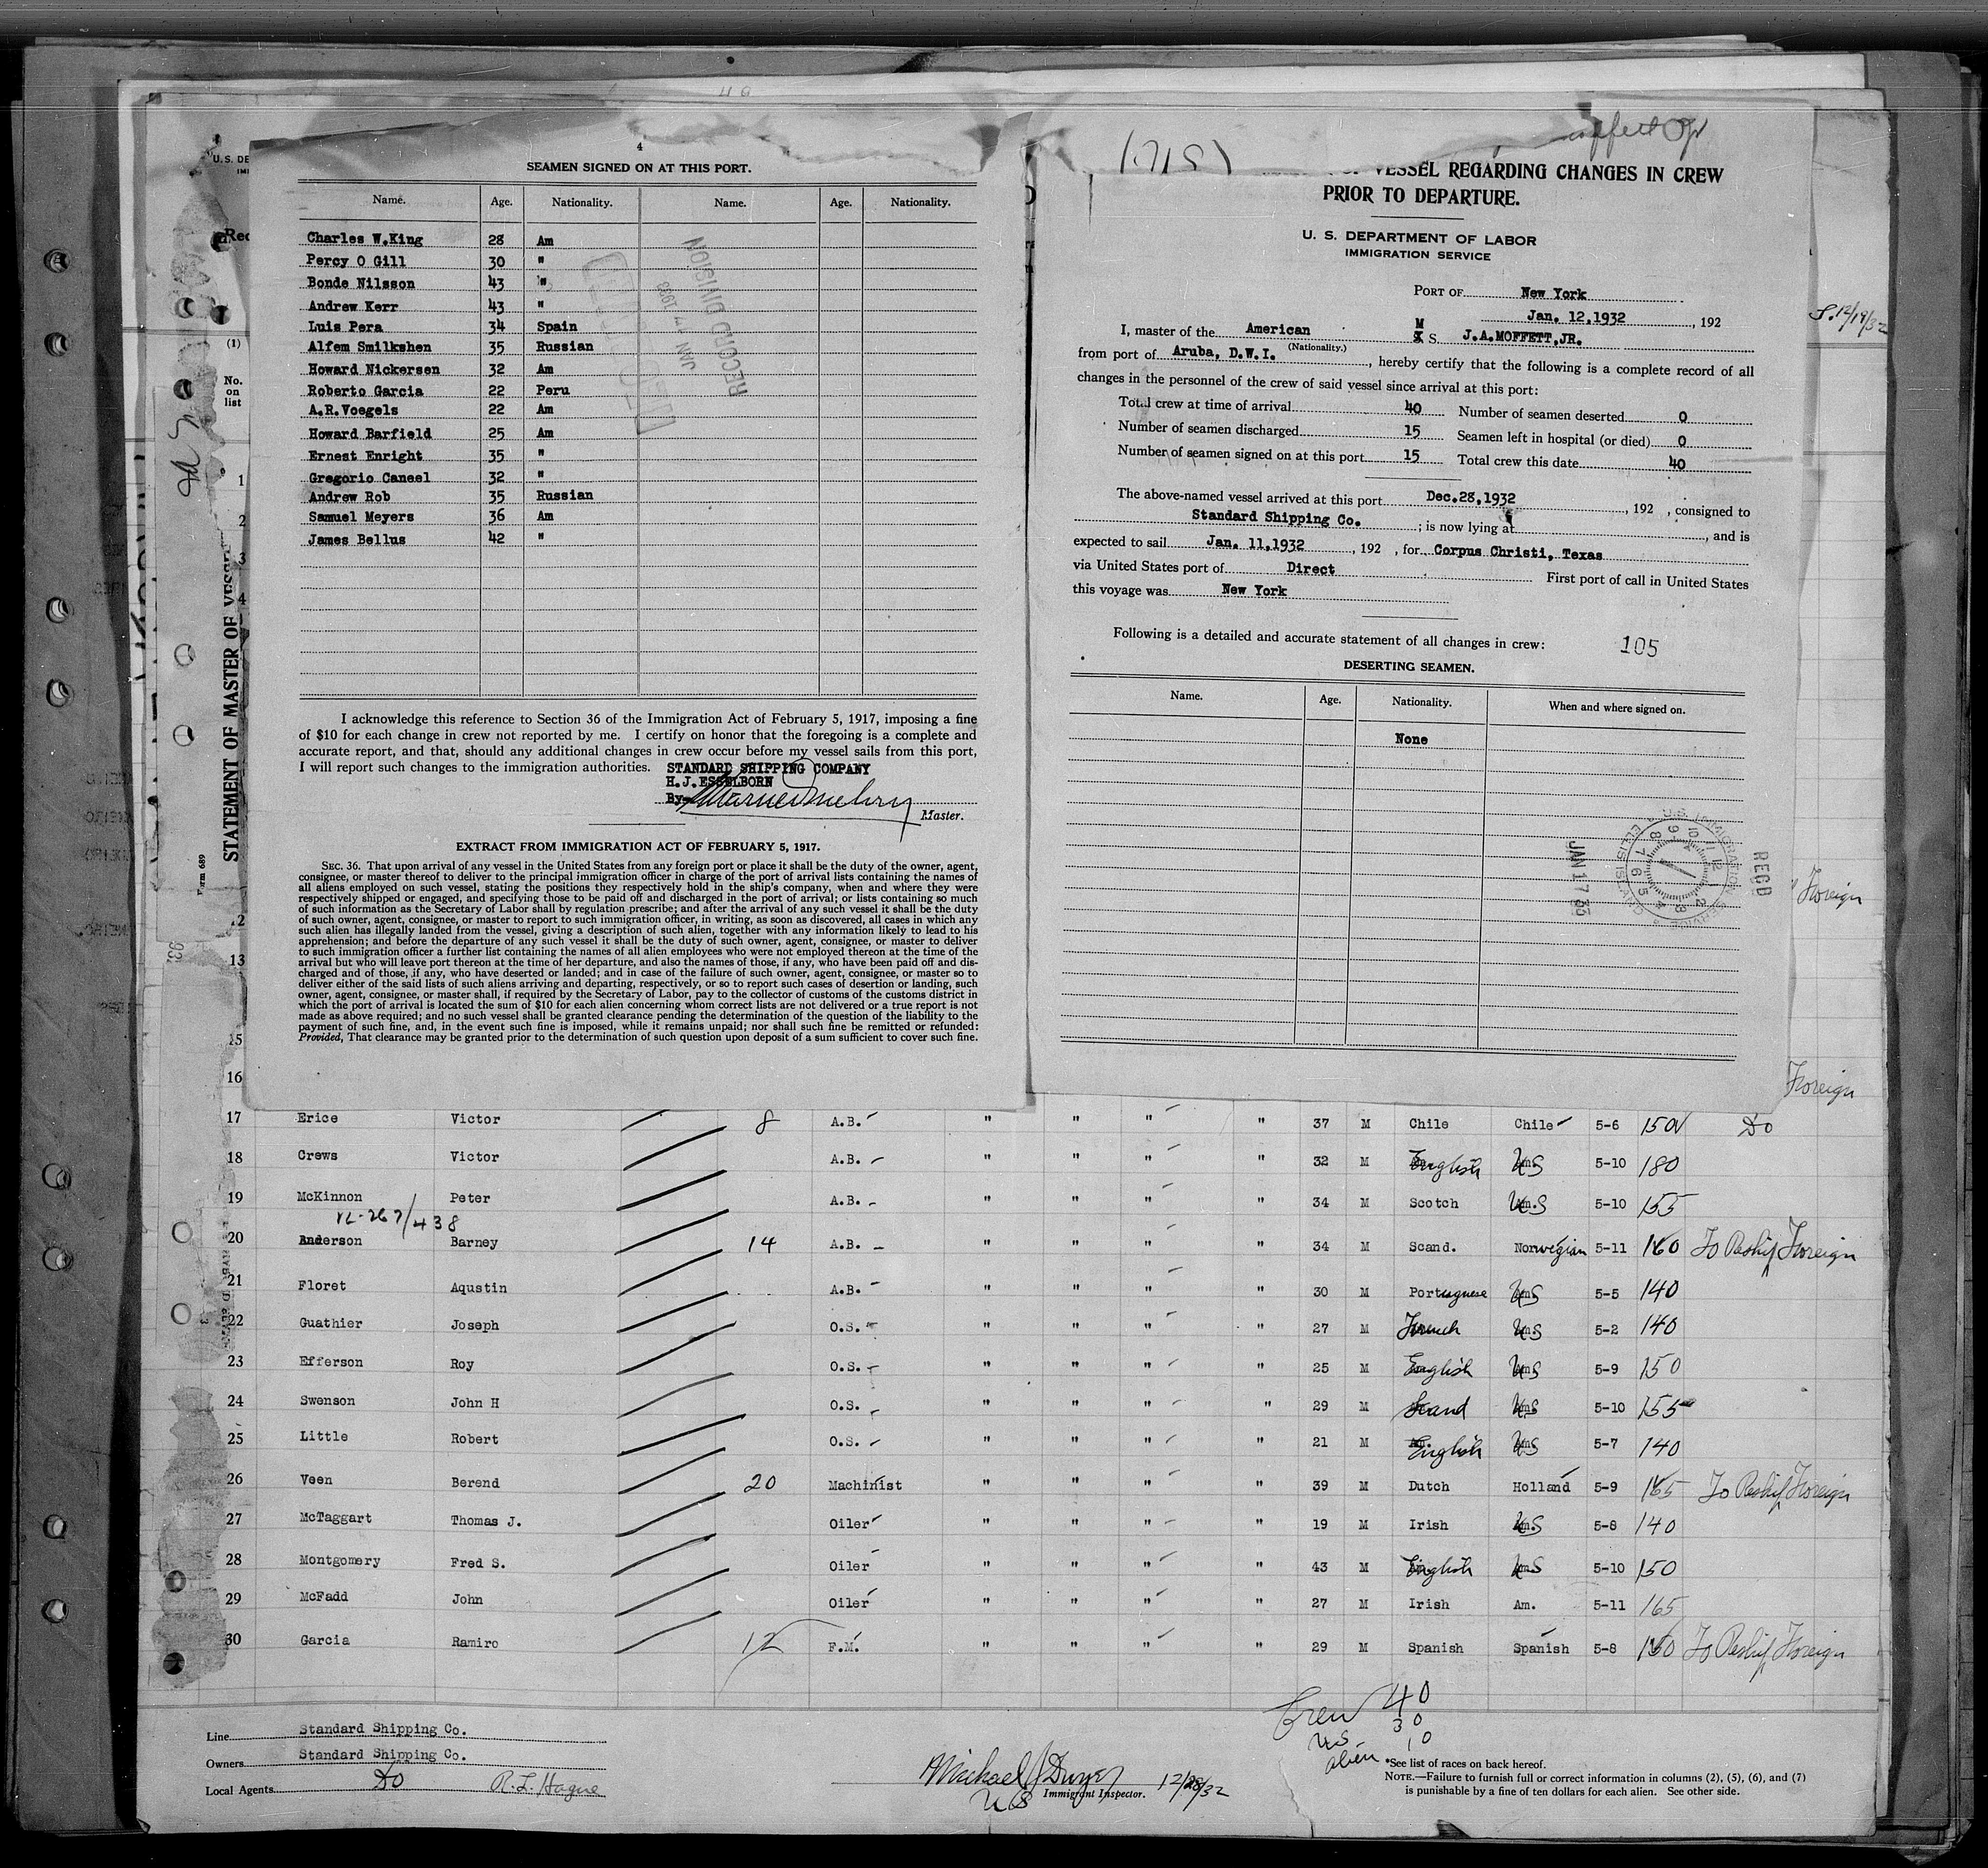 4
SEAMEN SIGNED ON AT THIS PORT.
Name. Age. Nationality. Name. Age. Nationality.
Charles W.King 28 Am
Percy O Gill 30 "
Bonde Nilsson 43 "
Andrew Kerr 43 "
Luis Pera 34 Spain
Alfem Smilkshen 35 Russian
Howard Nickersen 32 Am
Roberto Garcia 22 Peru
A.R.Voegels 22 Am
Howard Barfield 25 Am
Ernest Enright 35 "
Gregorio Caneel 32 "
Andrew Rob 35 Russian
Samuel Meyers 36 Am
James Bellus 42 "
RECORD DIVISION
JAN 17 1933
I acknowledge this reference to Section 36 of the Immigration Act of February 5, 1917, imposing a fine
of $10 for each change in crew not reported by me. I certify on honor that the foregoing is a complete and
accurate report, and that, should any additional changes in crew occur before my vessel sails from this port,
I will report such changes to the immigration authorities.
STANDARD SHIPPING COMPANY
H.J.ESSELBORN
By
Master.
EXTRACT FROM IMMIGRATION ACT OF FEBRUARY 5, 1917.
SEC. 36. That upon arrival of any vessel in the United States from any foreign port or place it shall be the duty of the owner, agent,
consignee, or master thereof to deliver to the principal immigration officer in charge of the port of arrival lists containing the names of
all aliens employed on such vessel, stating the positions they respectively hold in the ship's company, when and where they were
respectively shipped or engaged, and specifying those to be paid off and discharged in the port of arrival; or lists containing so much
of such information as the Secretary of Labor shall by regulation prescribe; and after the arrival of any such vessel it shall be the duty
of such owner, agent, consignee, or master to report to such immigration officer, in writing, as soon as discovered, all cases in which any
such alien has illegally landed from the vessel, giving a description of such alien, together with any information likely to lead to his
apprehension; and before the departure of any such vessel it shall be the duty of such owner, agent, consignee, or master to deliver
to such immigration officer a further list containing the names of all alien employees who were not employed thereon at the time of the
arrival but who will leave port thereon at the time of her departure, and also the names of those, if any, who have been paid off and dis-
charged and of those, if any, who have deserted or landed; and in case of the failure of such owner, agent, consignee, or master so to
deliver either of the said lists of such aliens arriving and departing, respectively, or so to report such cases of desertion or landing, such
owner, agent, consignee, or master shall, if required by the Secretary of Labor, pay to the collector of customs of the customs district in
which the port of arrival is located the sum of $10 for each alien concerning whom correct lists are not delivered or a true report is not
made as above required; and no such vessel shall be granted clearance pending the determination of the question of the liability to the
payment of such fine, and, in the event such fine is imposed, while it remains unpaid; nor shall such fine be remitted or refunded:
Provided, That clearance may be granted prior to the determination of such question upon deposit of a sum sufficient to cover such fine.
VESSEL REGARDING CHANGES IN CREW
PRIOR TO DEPARTURE.
U. S. DEPARTMENT OF LABOR
IMMIGRATION SERVICE
PORT OF New York
Jan. 12,1932, 192
I, master of the American M S. J.A.MOFFETT,JR.
(Nationality.)
from port of Aruba, D.W.I., hereby certify that the following is a complete record of all
changes in the personnel of the crew of said vessel since arrival at this port:
Total crew at time of arrival 40 Number of seamen deserted 0
Number of seamen discharged 15 Seamen left in hospital (or died) 0
Number of seamen signed on at this port 15 Total crew this date 40
The above-named vessel arrived at this port Dec.28,1932, 192 , consigned to
Standard Shipping Co. ; is now lying at , and is
expected to sail Jan. 11,1932, 192 , for Corpus Christi, Texas
via United States port of Direct First port of call in United States
this voyage was New York
Following is a detailed and accurate statement of all changes in crew: 105
DESERTING SEAMEN.
Name. Age. Nationality. When and where signed on.
None
RECD
JAN 17 33
S.12/19/32
Foreign
Foreign
STATEMENT OF MASTER OF VESSE
Form 689
U.S. DE
(1)
No.
on
list
1
2
3
4
12
13
15
16
17 Erice Victor 8 A.B. " " " " 37 M Chile Chile 5-6 150 Do
18 Crews Victor A.B. " " " " 32 M English US 5-10 180
19 McKinnon Peter A.B. " " " " 34 M Scotch US 5-10 155
VL-267/438
20 Anderson Barney 14 A.B. " " " " 34 M Scand. Norwegian 5-11 160 To Reship Foreign
21 Floret Aqustin A.B. " " " " 30 M Portuguese US 5-5 140
22 Guathier Joseph O.S. " " " " 27 M French US 5-2 140
23 Efferson Roy O.S. " " " " 25 M English US 5-9 150
24 Swenson John H O.S. " " " " 29 M Scand US 5-10 155
25 Little Robert O.S. " " " " 21 M English US 5-7 140
26 Veen Berend 20 Machinist " " " " 39 M Dutch Holland 5-9 165 To Reship Foreign
27 McTaggart Thomas J. Oiler " " " " 19 M Irish US 5-8 140
28 Montgomery Fred S. Oiler " " " " 43 M English US 5-10 150
29 McFadd John Oiler " " " " 27 M Irish Am. 5-11 165
30 Garcia Ramiro 12 F.M. " " " " 29 M Spanish Spanish 5-8 160 To Reship Foreign
Crew 40
US 30
alien 10
Line Standard Shipping Co.
Owners Standard Shipping Co.
Local Agents Do R.L. Hague
Michael J Dwyer 12/28/32
US Immigrant Inspector.
*See list of races on back hereof.
NOTE.—Failure to furnish full or correct information in columns (2), (5), (6), and (7)
is punishable by a fine of ten dollars for each alien. See other side.